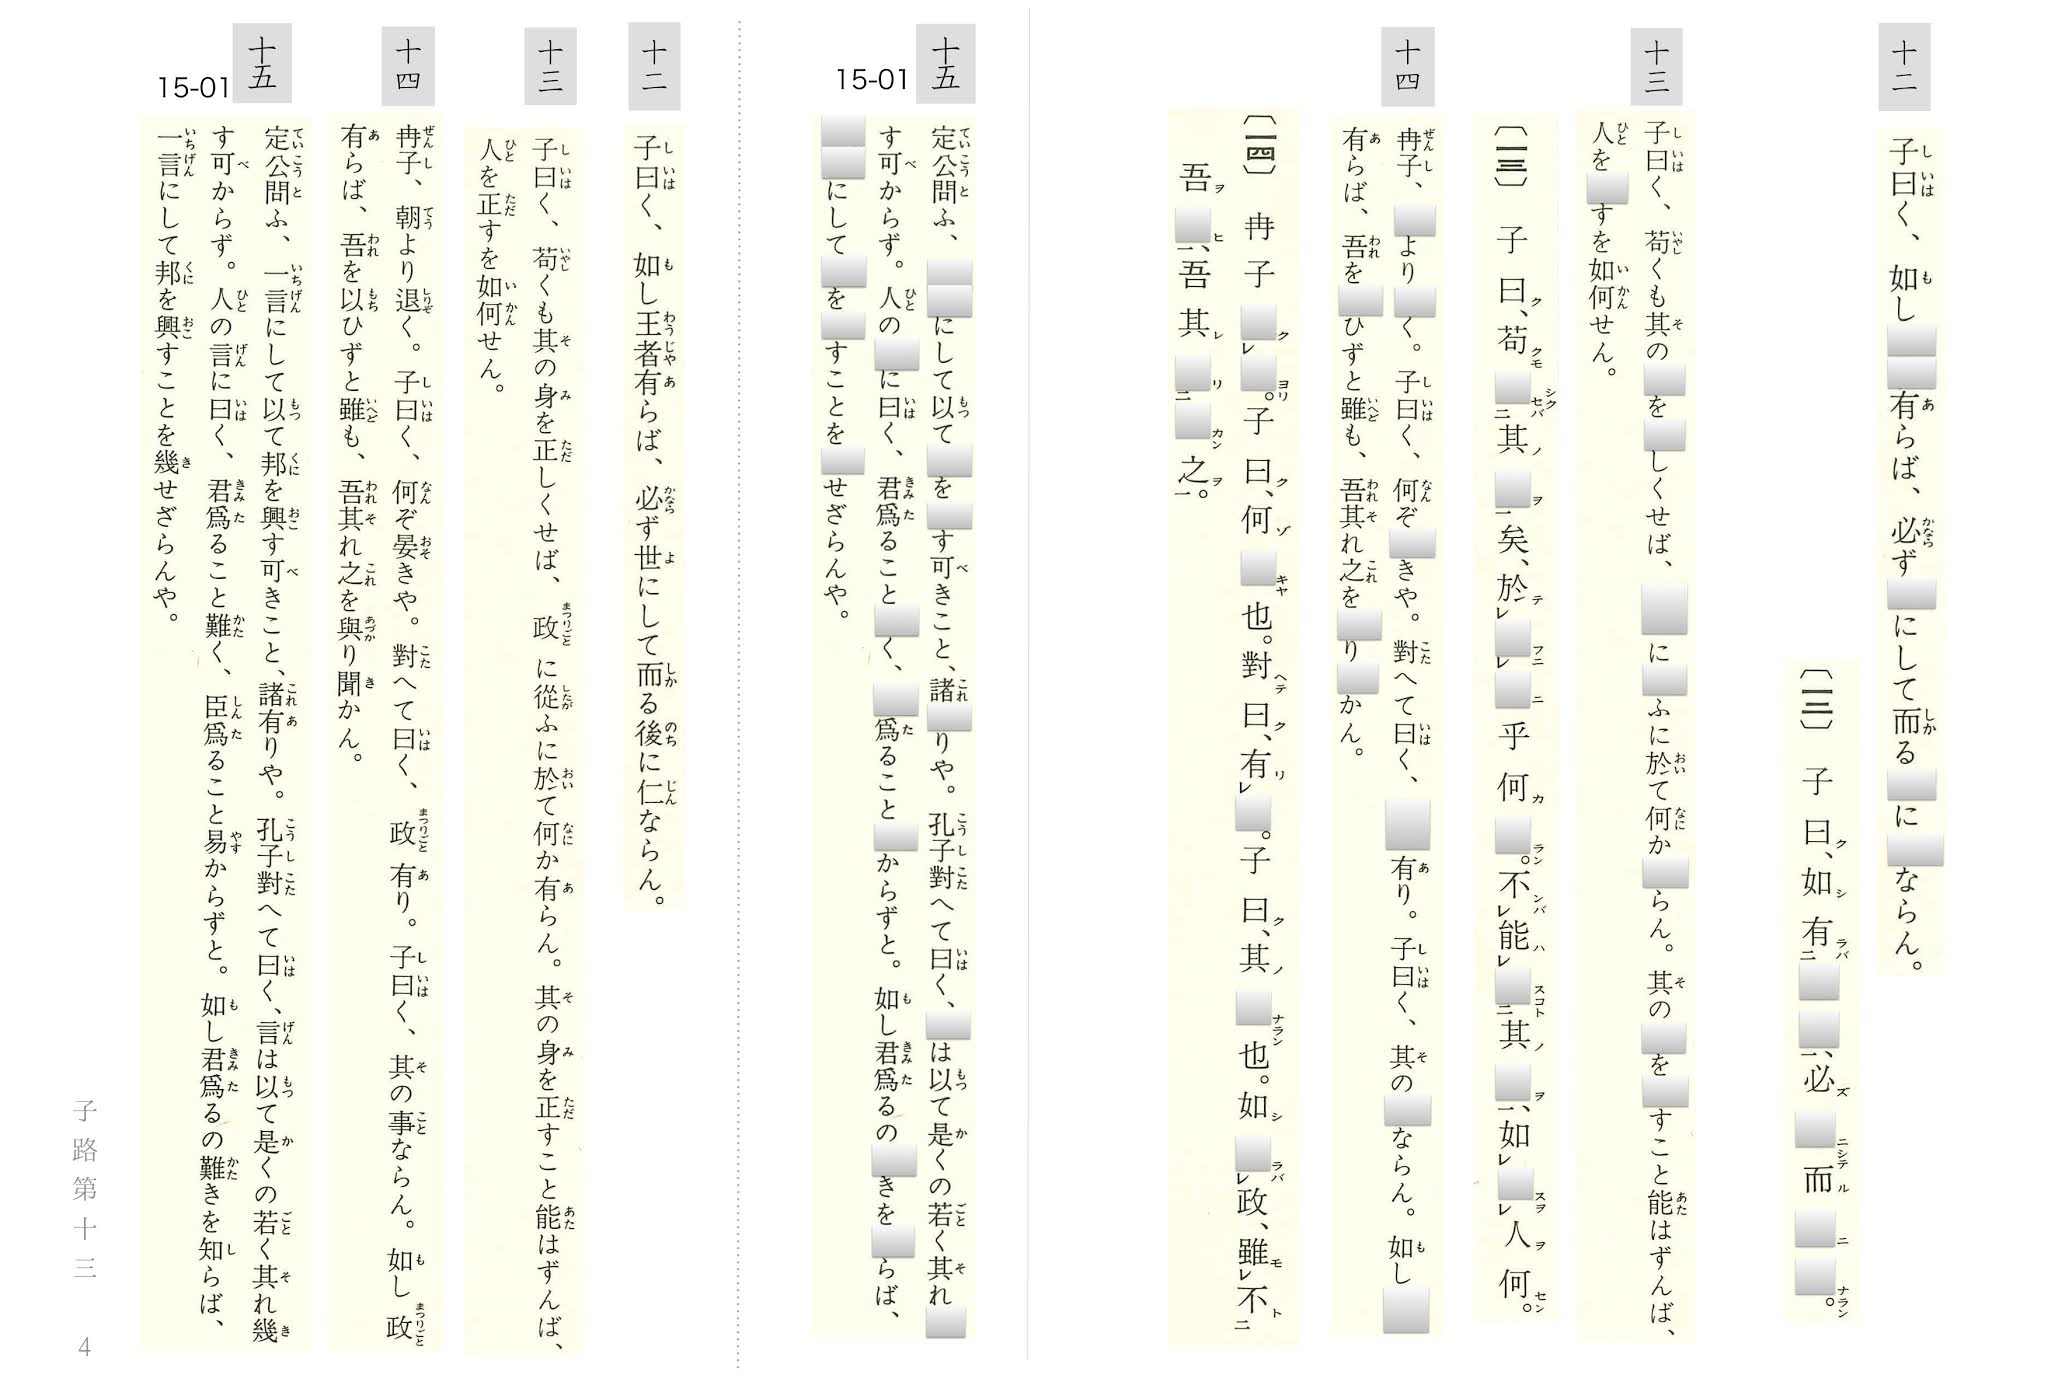 十二
子曰く、如し□□有らば、必ず□にして而る□に□ならん。
〔一二〕 子曰、如有□□、必□而□□。
十三
子曰く、苟くも其の□を□しくせば、□に□ふに於て何か□らん。其の□を□すこと能はずんば、
人を□すを如何せん。
〔一三〕 子曰、苟□其□矣、於□□乎何□。不能□其□、如□人何。
十四
冉子、□より□く。子曰く、何ぞ□きや。對へて曰く、□有り。子曰く、其の□ならん。如し□
有らば、吾を□ひずと雖も、吾其れ之を□り□かん。
〔一四〕 冉子□□。子曰、何□也。對曰、有□。子曰、其□也。如□政、雖不
吾□、吾其□□之。
十五
15-01
定公問ふ、□□にして以て□を□す可きこと、諸□りや。孔子對へて曰く、□は以て是くの若く其れ□
す可からず。人の□に曰く、君爲ること□く、□爲ること□からずと。如し君爲るの□きを□らば、
□□にして□を□すことを□せざらんや。
十二
子曰く、如し王者有らば、必ず世にして而る後に仁ならん。
十三
子曰く、苟くも其の身を正しくせば、政に從ふに於て何か有らん。其の身を正すこと能はずんば、
人を正すを如何せん。
十四
冉子、朝より退く。子曰く、何ぞ晏きや。對へて曰く、政有り。子曰く、其の事ならん。如し政
有らば、吾を以ひずと雖も、吾其れ之を與り聞かん。
十五
15-01
定公問ふ、一言にして以て邦を興す可きこと、諸有りや。孔子對へて曰く、言は以て是くの若く其れ幾
す可からず。人の言に曰く、君爲ること難く、臣爲ること易からずと。如し君爲るの難きを知らば、
一言にして邦を興すことを幾せざらんや。
子路第十三 4